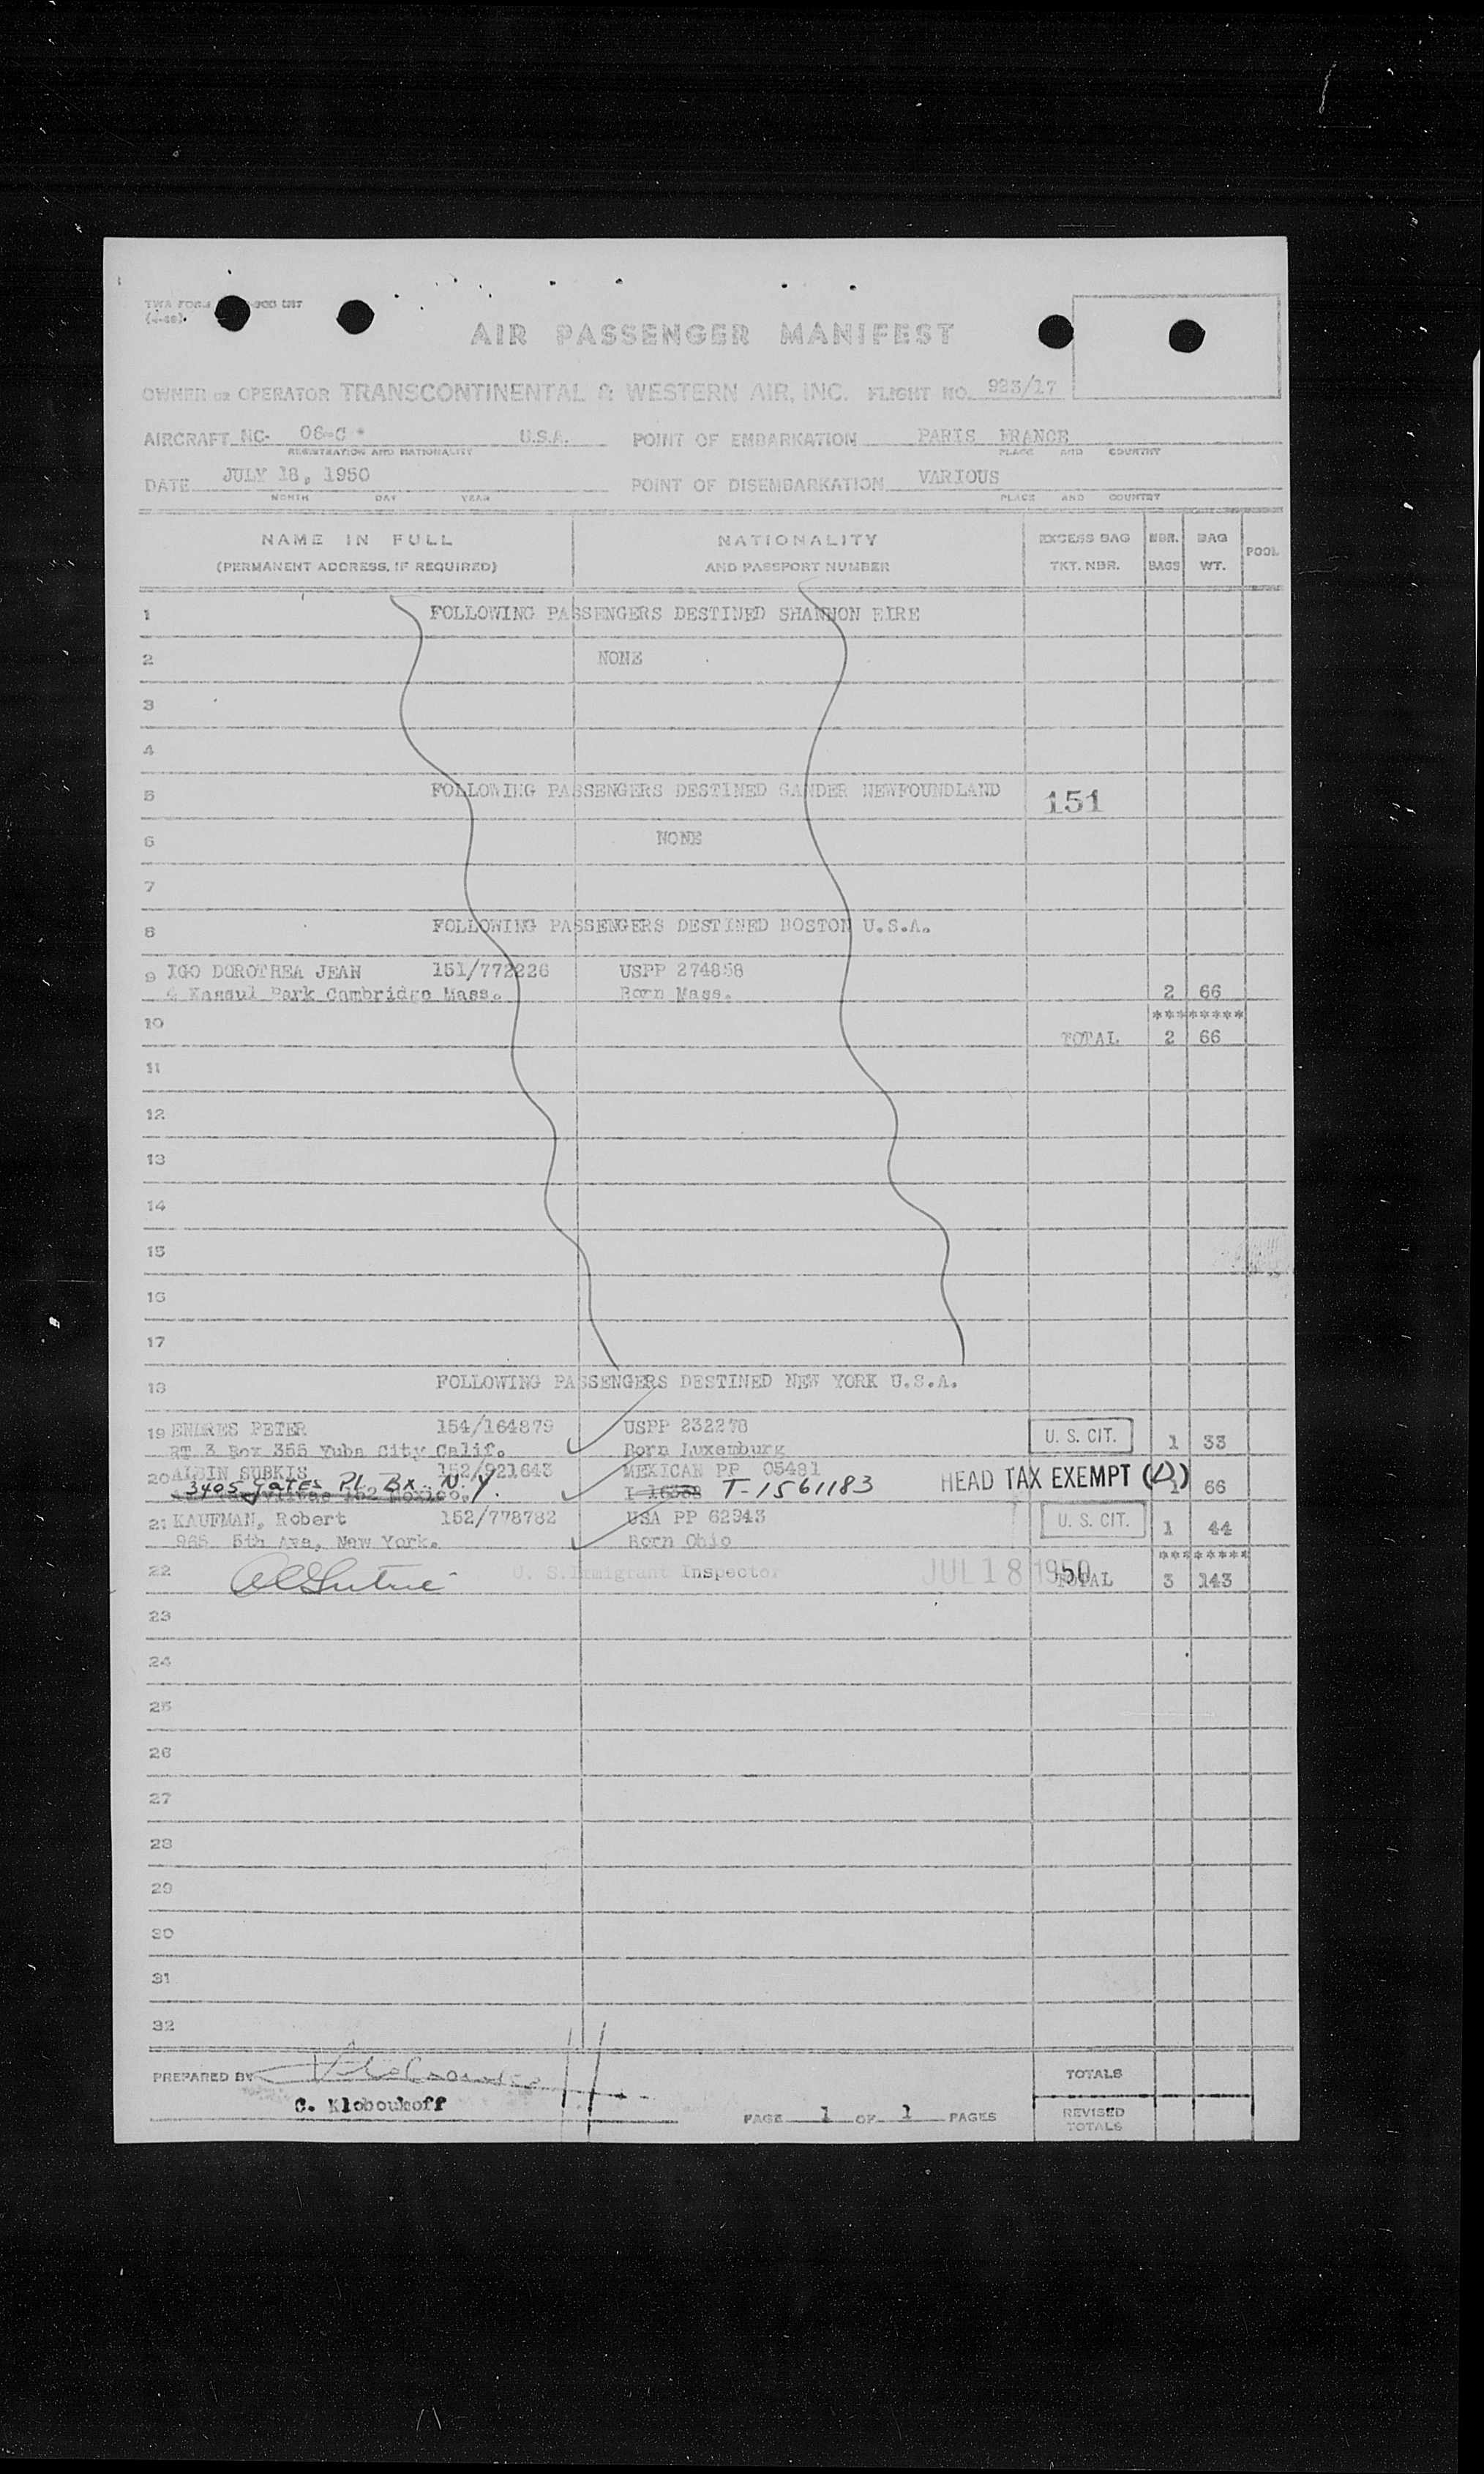 TWA FORM
(4-49)
AIR PASSENGER MANIFEST
OWNER OR OPERATOR TRANSCONTINENTAL & WESTERN AIR, INC. FLIGHT NO. 923/17
AIRCRAFT NC- 06-C U.S.A. POINT OF EMBARKATION PARIS FRANCE
REGISTRATION AND NATIONALITY PLACE AND COUNTRY
DATE JULY 18, 1950 POINT OF DISEMBARKATION VARIOUS
MONTH DAY YEAR PLACE AND COUNTRY
NAME IN FULL NATIONALITY EXCESS BAG NBR. BAG POOL
(PERMANENT ADDRESS, IF REQUIRED) AND PASSPORT NUMBER TKT. NBR. BAGS WT.
1 FOLLOWING PASSENGERS DESTINED SHANNON EIRE
2 NONE
3
4
5 FOLLOWING PASSENGERS DESTINED GANDER NEWFOUNDLAND 151
6 NONE
7
8 FOLLOWING PASSENGERS DESTINED BOSTON U.S.A.
9 IGO DOROTHEA JEAN 151/772226 USPP 274858
4 Park Cambridge Mass. Born Mass. 2 66
10 *********
TOTAL 2 66
11
12
13
14
15
16
17
18 FOLLOWING PASSENGERS DESTINED NEW YORK U.S.A.
19 ENDRES PETER 154/164879 USPP 232278 U. S. CIT.
RT 3 Box 355 Yuba City Calif. Born Luxemburg 1 33
20 ALBIN SUBKIS 152/921643 MEXICAN PP 05481
3405 Gates Pl. Bx. N.Y. T-1561183 HEAD TAX EXEMPT (D) 1 66
152 Mexico. I-16338
21 KAUFMAN, Robert 152/778782 USA PP 62943 U. S. CIT. 1 44
965 5th Ave, New York. Born Ohio
22 U. S. Immigrant Inspector JUL 18 1950 *********
TOTAL 3 143
23
24
25
26
27
28
29
30
31
32
PREPARED BY TOTALS
C. Kloboukoff
PAGE 1 OF 1 PAGES REVISED
TOTALS